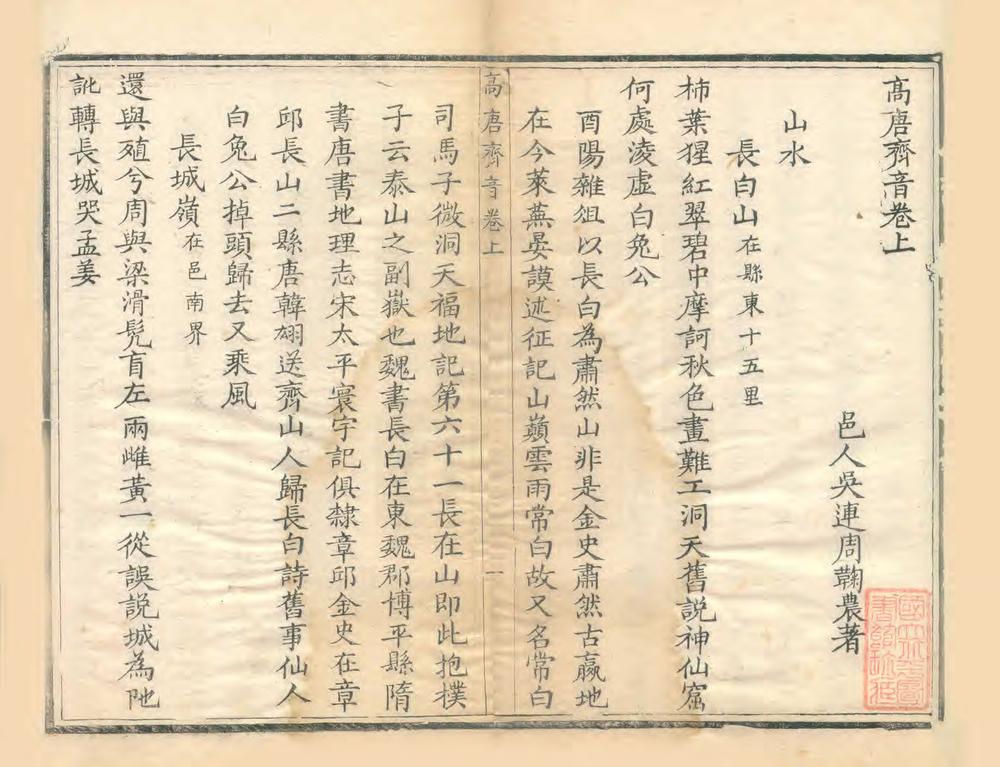 高唐齊音卷上
邑人吳連周鞠農著
山水
長白山在縣東十五里
柿葉猩紅翠碧中摩訶秋色畫難工洞天舊說神仙窟
何處淩虛白兔公
酉陽雜俎以長白為肅然山非是金史肅然古嬴地
在今萊蕪晏謨述征記山巔雲雨常白故又名常白
高唐齊音卷上 一
司馬子微洞天福地記第六十一長在山即此抱樸
子云泰山之副嶽也魏書長白在東魏郡博平縣隋
書唐書地理志宋太平寰宇記俱隸章邱金史在章
邱長山二縣唐韓翃送齊山人歸長白詩舊事仙人
白兔公掉頭歸去又乘風
長城嶺在邑南界
還與殖兮周與梁滑髡盲左兩雌黃一從誤說城為阤
訛轉長城哭孟姜